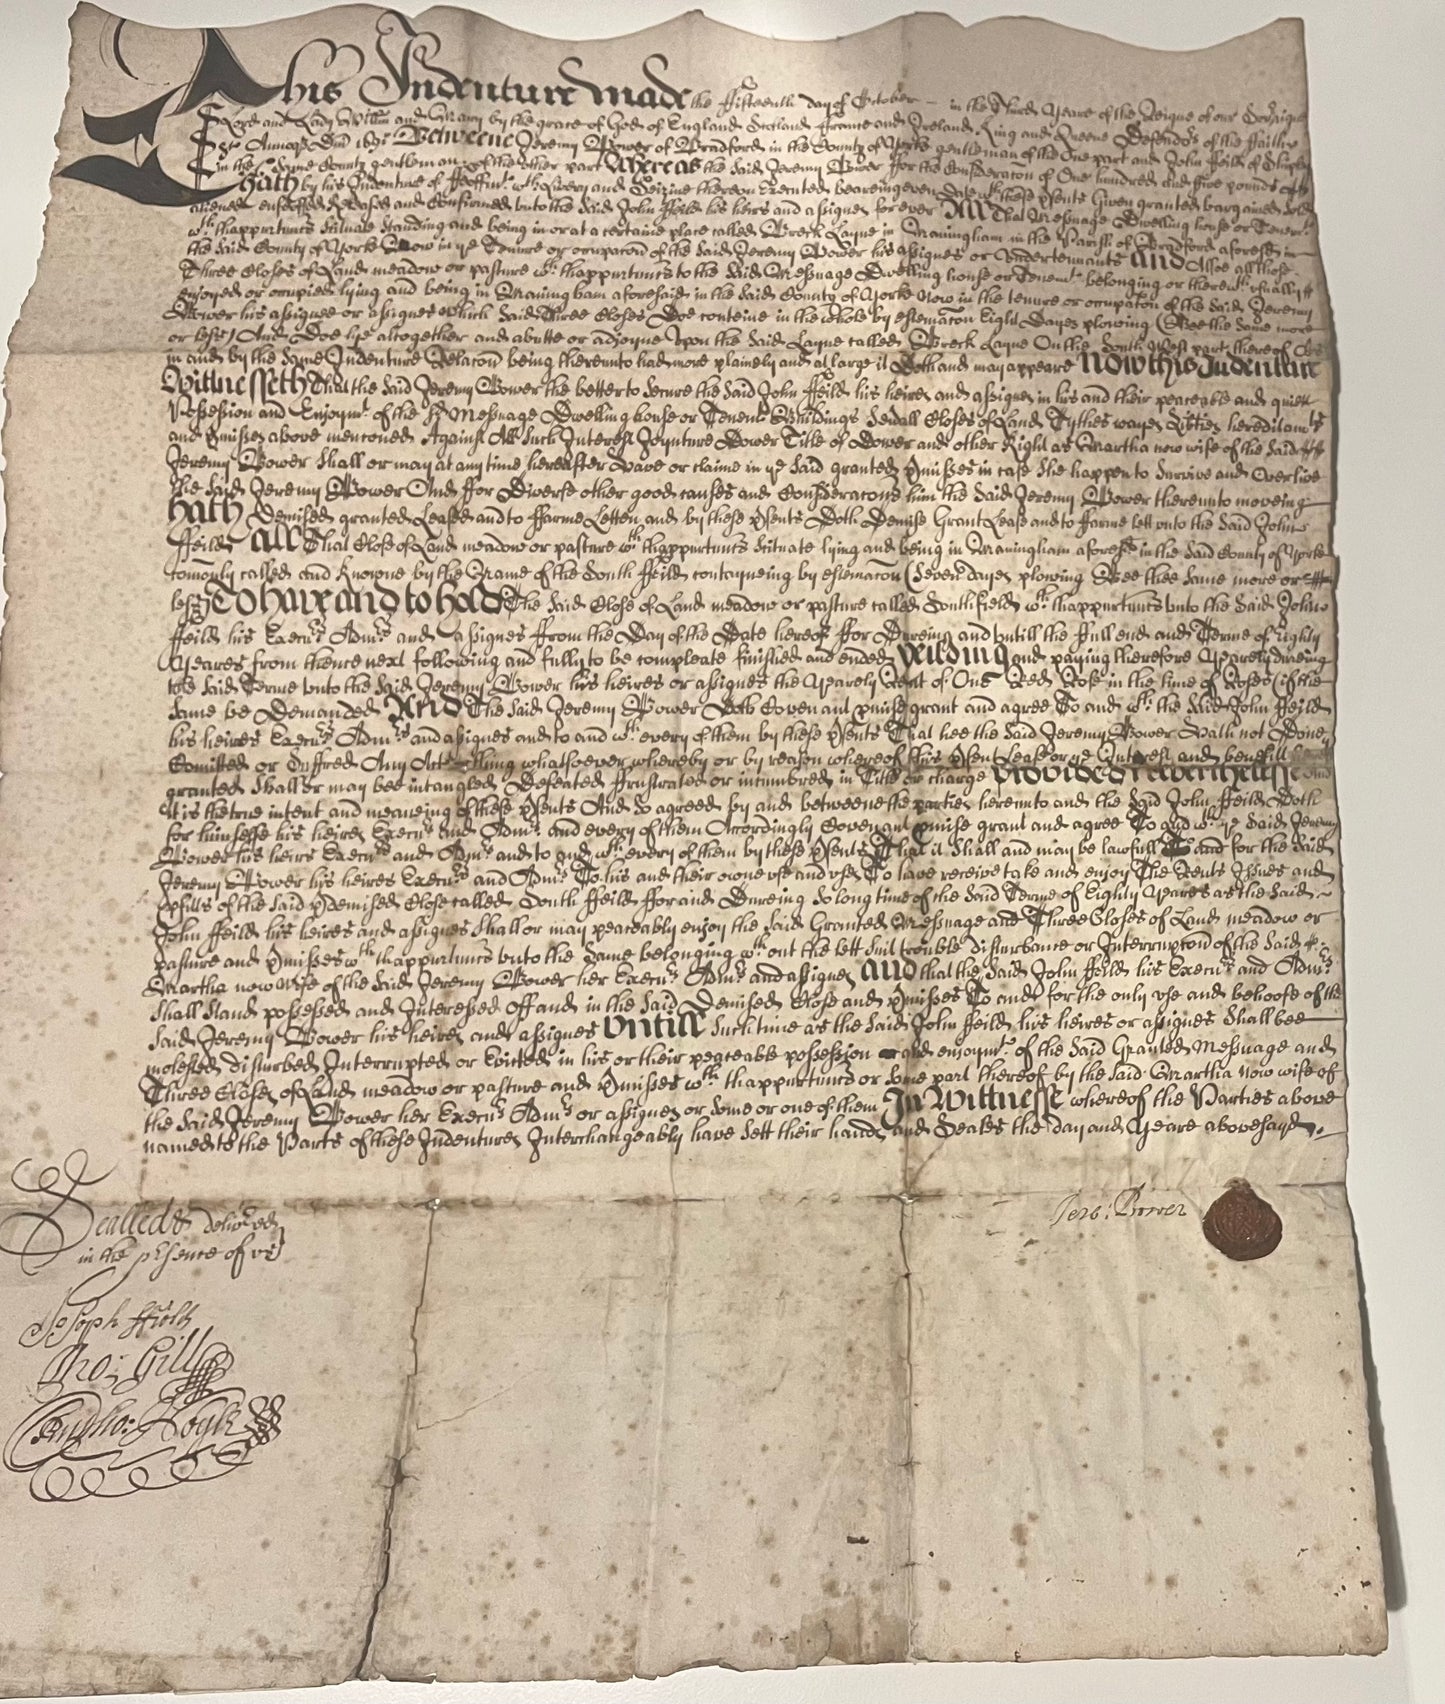 This Indenture made the ffifteenth day of October in the Third Yeare of the Reigne of our Soveraigne
Lord and Lady William and Mary by the grace of God of England Scotland ffrance and Ireland King and Queene Defendors of the ffaith
&c Annoq Dni 1691 Betweene Jeremy Bower of Bradford in the County of Yorke gentleman of the One part and John ffeild of Shipley
in the Same County gentleman of the other part Whereas the said Jeremy Bower ffor the Consideracon of One hundred and five pounds
Hath by his Indenture of ffeoffmt wth livery and Seizine thereon Executed beareing even Date wth these psents Given granted bargained Sold
aliened enfeoffed Released and Confirmed unto the Said John ffeild his heirs and assignes for ever All That Messuage Dwelling house or Tenemt
wth thappurtents Scituate Standing and being in or at a certaine place called Breck Layne in Maningham in the Parish of Bradford aforesd in
the Said County of Yorke Now in ye Tenure or occupacon of the Said Jeremy Bower his assignes or Undertennants And Alsoe all those
Three Closes of Land meadow or pasture wth thappurtents to the Said Messuage Dwelling house or Tenemt belonging or therewth usually
enjoyed or occupied lying and being in Maningham aforesaid in the Said County of Yorke Now in the tenure or occupacon of the Said Jeremy
Bower his assignee or assignes Which Said Three Closes Doe conteine in the whole by estemacon Eight Dayes plowing (Bee the Same more
or less) And Doe lye altogether and abutte or adjoyne upon the Said Layne called Breck Layne On the South West part thereof As
in and by the Same Indenture Relacon being thereunto had more plainely and at large it Doth and may appeare Now this Indenture
Wittnesseth That the Said Jeremy Bower the better to Secure the Said John ffeild his heires and assignes in his and their peaceable and quiett
Possession and Enjoymt of the sd Messuage Dwelling house or Tenemt Buildings Sevall Closes of Land Tythes wayes hereditamts
and pmisses above mencioned Against All Such Interest Joynture Dower Title of Dower and other Right as Martha now wife of the Said
Jeremy Bower Shall or may at any time hereafter Have or claime in ye Said granted pmisses in case She happen to Survive and Overlive
the Said Jeremy Bower And ffor Diverse other good causes and Consideracons him the Said Jeremy Bower thereunto moveing
Hath Demised granted Leased and to ffarme Letten and by these psents Doth Demise Grant Lease and to ffarme lett unto the Said John
ffeild All That Close of Land meadow or pasture wth thappurtents Scituate lying and being in Maningham aforesd in the Said County of Yorke
comonly called and Knowne by the Name of the South ffeild contayneing by estemacon (Seven dayes plowing Bee thee Same more or
less) To have and to hold The Said Close of Land meadow or pasture called Southfield wth thappurtents unto the Said John
ffeild his Execurs Admrs and assignes ffrom the Day of the Date hereof ffor Dureing and Untill the ffull end and Terme of Eighty
Yeares from thence next following and fully to be compleate finished and ended Yeilding and paying therefore Yearely dureing
the Said Terme unto the Said Jeremy Bower his heires or assignes the Yearely Rent of One Red Rose in the time of Roses (if the
Same be Demanded And The Said Jeremy Bower Doth Covenant pmise grant and agree To and wth the Said John ffeild
his heires Execurs Admrs and assignes and to and wth every of them by these psents That hee the Said Jeremy Bower Hath not Done
Comitted or Suffred Any Act Thing whatsoever whereby or by reason whereof this psent Lease or ye Interest and benefitt
granted Shall or may bee intangled Defeated ffrustrated or incumbred in Title or charge Provided Neverthelesse And
It is the true intent and meaneing of these psents And So agreed by and betweene the parties hereunto and the Said John ffeild Doth
for himselfe his heires Execurs and Admrs and every of them Accordingly Covenant pmise grant and agree To and wth ye Said Jeremy
Bower his heirs Execurs and Admrs and to and wth every of them by these psents That it Shall and may be lawfull To and for the Said
Jeremy Bower his heires Execurs and Admrs To his and their owne use and uses To have receive take and enjoy The Rents Issues and
pfitts of the Said pdemised Close called South ffeild ffor and Dureing So long time of the Said Terme of Eighty Yeares as the Said
John ffeild his heires and assignes Shall or may peaceably enjoy the Said Granted Messuage and Three Closes of Land meadow or
pasture and pmisses wth thappurtents unto the Same belonging wthout the lett Suit trouble disturbance or Interrupton of the Said
Martha now wife of the Said Jeremy Bower her Execurs Admrs and assignes And that the Said John ffeild his Execurs and Admrs
Shall Stand possessed and Interessed Off and in the Said Demised Close and pmisses To and for the only use and behoofe of the
Said Jeremy Bower his heires and assignes Untill Such time as the Said John ffeild his heires or assignes Shall bee
molested disturbed Interrupted or Evicted in his or their peaceable possession and enjoymt of the Said Granted Messuage and
Three Closes of Land meadow or pasture and pmisses wth thappurtents or Some part thereof by the Said Martha Now wife of
the Said Jeremy Bower her Execurs Admrs or assignes or Some or one of them In Wittnesse whereof the Parties above
named to the Parts of these Indentures Interchangeably have Sett their hands and Seales the day and Yeare abovesayd.
Jere: Bower
Sealled & delivered
in the psence of us
Joseph ffield
Tho: Gill